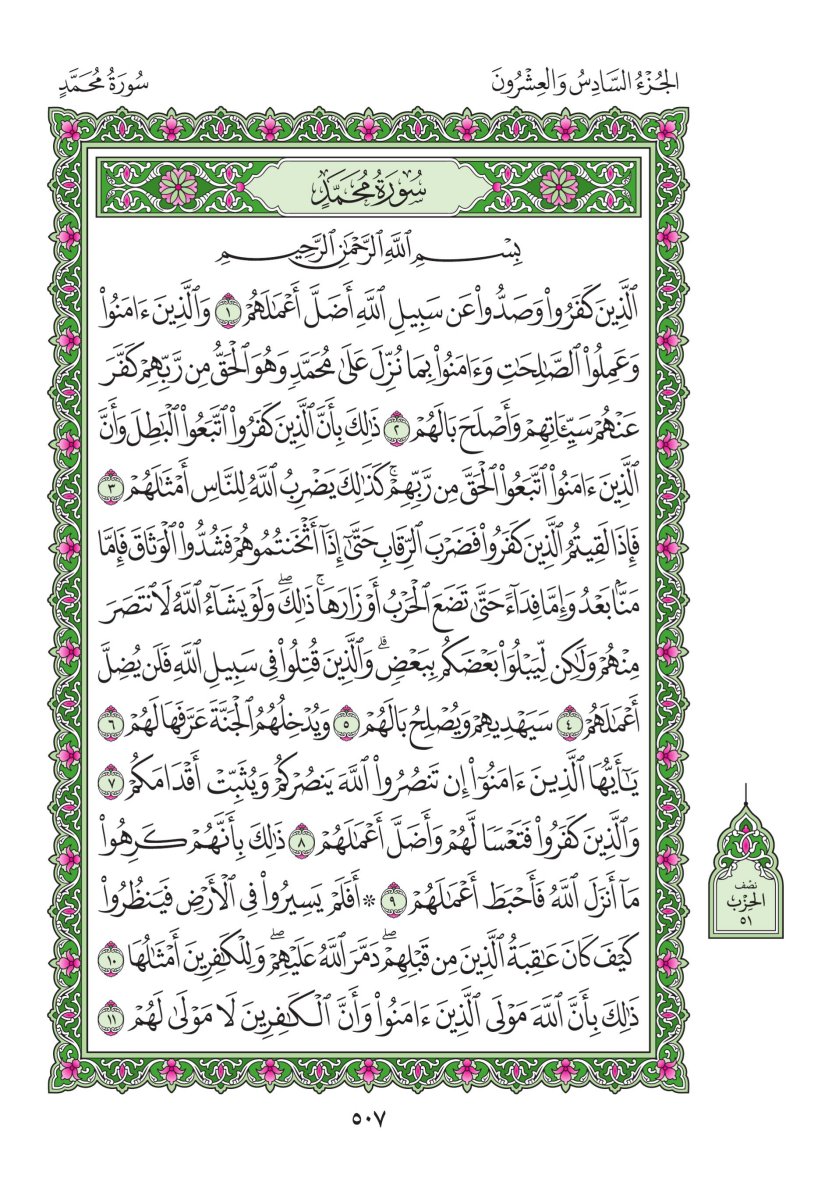 الجُزْءُ السَّادِسُ وَالعِشْرُونَ
سُورَةُ مُحَمَّدٍ
سُورَةُ مُحَمَّدٍ
بِسْمِ ٱللَّهِ ٱلرَّحْمَٰنِ ٱلرَّحِيمِ
ٱلَّذِينَ كَفَرُواْ وَصَدُّواْ عَن سَبِيلِ ٱللَّهِ أَضَلَّ أَعْمَٰلَهُمْ ١ وَٱلَّذِينَ ءَامَنُواْ
وَعَمِلُواْ ٱلصَّٰلِحَٰتِ وَءَامَنُواْ بِمَا نُزِّلَ عَلَىٰ مُحَمَّدٍ وَهُوَ ٱلْحَقُّ مِن رَّبِّهِمْ كَفَّرَ
عَنْهُمْ سَيِّـَٔاتِهِمْ وَأَصْلَحَ بَالَهُمْ ٢ ذَٰلِكَ بِأَنَّ ٱلَّذِينَ كَفَرُواْ ٱتَّبَعُواْ ٱلْبَٰطِلَ وَأَنَّ
ٱلَّذِينَ ءَامَنُواْ ٱتَّبَعُواْ ٱلْحَقَّ مِن رَّبِّهِمْۚ كَذَٰلِكَ يَضْرِبُ ٱللَّهُ لِلنَّاسِ أَمْثَٰلَهُمْ ٣
فَإِذَا لَقِيتُمُ ٱلَّذِينَ كَفَرُواْ فَضَرْبَ ٱلرِّقَابِ حَتَّىٰٓ إِذَآ أَثْخَنتُمُوهُمْ فَشُدُّواْ ٱلْوَثَاقَ فَإِمَّا
مَنَّۢا بَعْدُ وَإِمَّا فِدَآءً حَتَّىٰ تَضَعَ ٱلْحَرْبُ أَوْزَارَهَاۚ ذَٰلِكَۖ وَلَوْ يَشَآءُ ٱللَّهُ لَٱنتَصَرَ
مِنْهُمْ وَلَٰكِن لِّيَبْلُوَاْ بَعْضَكُم بِبَعْضٖۗ وَٱلَّذِينَ قُتِلُواْ فِي سَبِيلِ ٱللَّهِ فَلَن يُضِلَّ
أَعْمَٰلَهُمْ ٤ سَيَهْدِيهِمْ وَيُصْلِحُ بَالَهُمْ ٥ وَيُدْخِلُهُمُ ٱلْجَنَّةَ عَرَّفَهَا لَهُمْ ٦
يَٰٓأَيُّهَا ٱلَّذِينَ ءَامَنُوٓاْ إِن تَنصُرُواْ ٱللَّهَ يَنصُرْكُمْ وَيُثَبِّتْ أَقْدَامَكُمْ ٧
وَٱلَّذِينَ كَفَرُواْ فَتَعْسًا لَّهُمْ وَأَضَلَّ أَعْمَٰلَهُمْ ٨ ذَٰلِكَ بِأَنَّهُمْ كَرِهُواْ
مَآ أَنزَلَ ٱللَّهُ فَأَحْبَطَ أَعْمَٰلَهُمْ ٩ ۞ أَفَلَمْ يَسِيرُواْ فِي ٱلْأَرْضِ فَيَنظُرُواْ
كَيْفَ كَانَ عَٰقِبَةُ ٱلَّذِينَ مِن قَبْلِهِمْۖ دَمَّرَ ٱللَّهُ عَلَيْهِمْۖ وَلِلْكَٰفِرِينَ أَمْثَٰلُهَا ١٠
ذَٰلِكَ بِأَنَّ ٱللَّهَ مَوْلَى ٱلَّذِينَ ءَامَنُواْ وَأَنَّ ٱلْكَٰفِرِينَ لَا مَوْلَىٰ لَهُمْ ١١
نصف
الحِزْب
٥١
٥٠٧